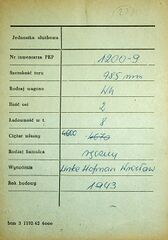 Jednostka służbowa
Nr inwentarza PKP 1200-9
Szerokość toru 985 mm
Rodzaj wagonu Wh
Ilość osi 2
Ładowność w t. 8
Ciężar własny 4600 4670
Rodzaj hamulca ręczny
Wytwórnia Linke Hofman Wrocław
Rok budowy 1943